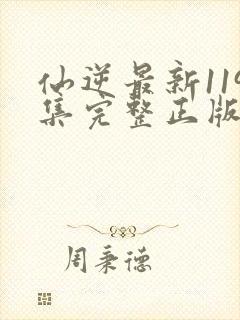 仙逆最新119
集完整正版
周秉德